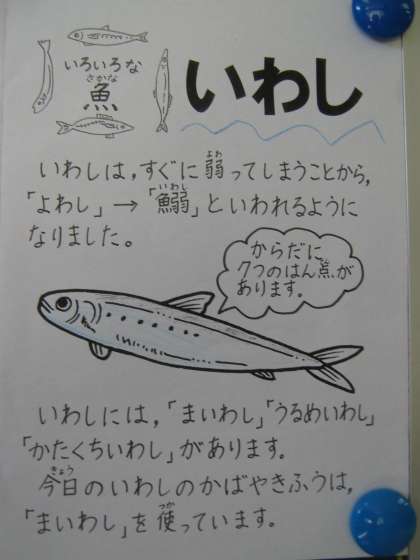 いろいろな
さかな
魚
いわし
いわしは,すぐに弱ってしまうことから,
「よわし」→「鰯」といわれるように
なりました。
からだに
7つのはん点が
あります。
いわしには,「まいわし」「うるめいわし」
「かたくちいわし」があります。
今日のいわしのかばやきふうは,
「まいわし」を使っています。